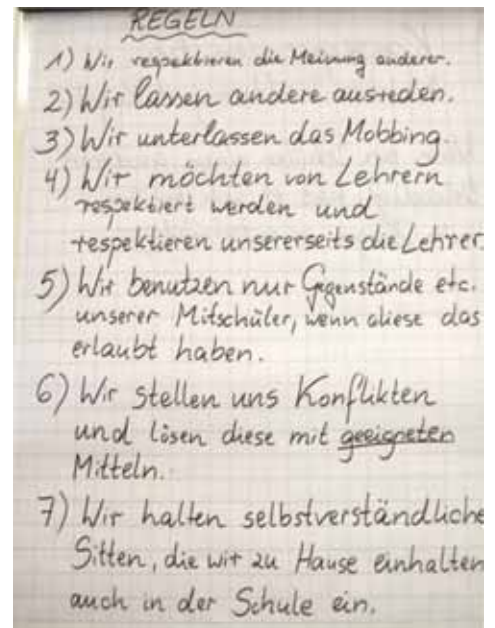 REGELN
1) Wir respektieren die Meinung anderer.
2) Wir lassen andere ausreden.
3) Wir unterlassen das Mobbing.
4) Wir möchten von Lehrern
respektiert werden und
respektieren unsererseits die Lehrer.
5) Wir benutzen nur Gegenstände etc.
unserer Mitschüler, wenn diese das
erlaubt haben.
6) Wir stellen uns Konflikten
und lösen diese mit geeigneten
Mitteln.
7) Wir halten selbstverständliche
Sitten, die wir zu Hause einhalten
auch in der Schule ein.